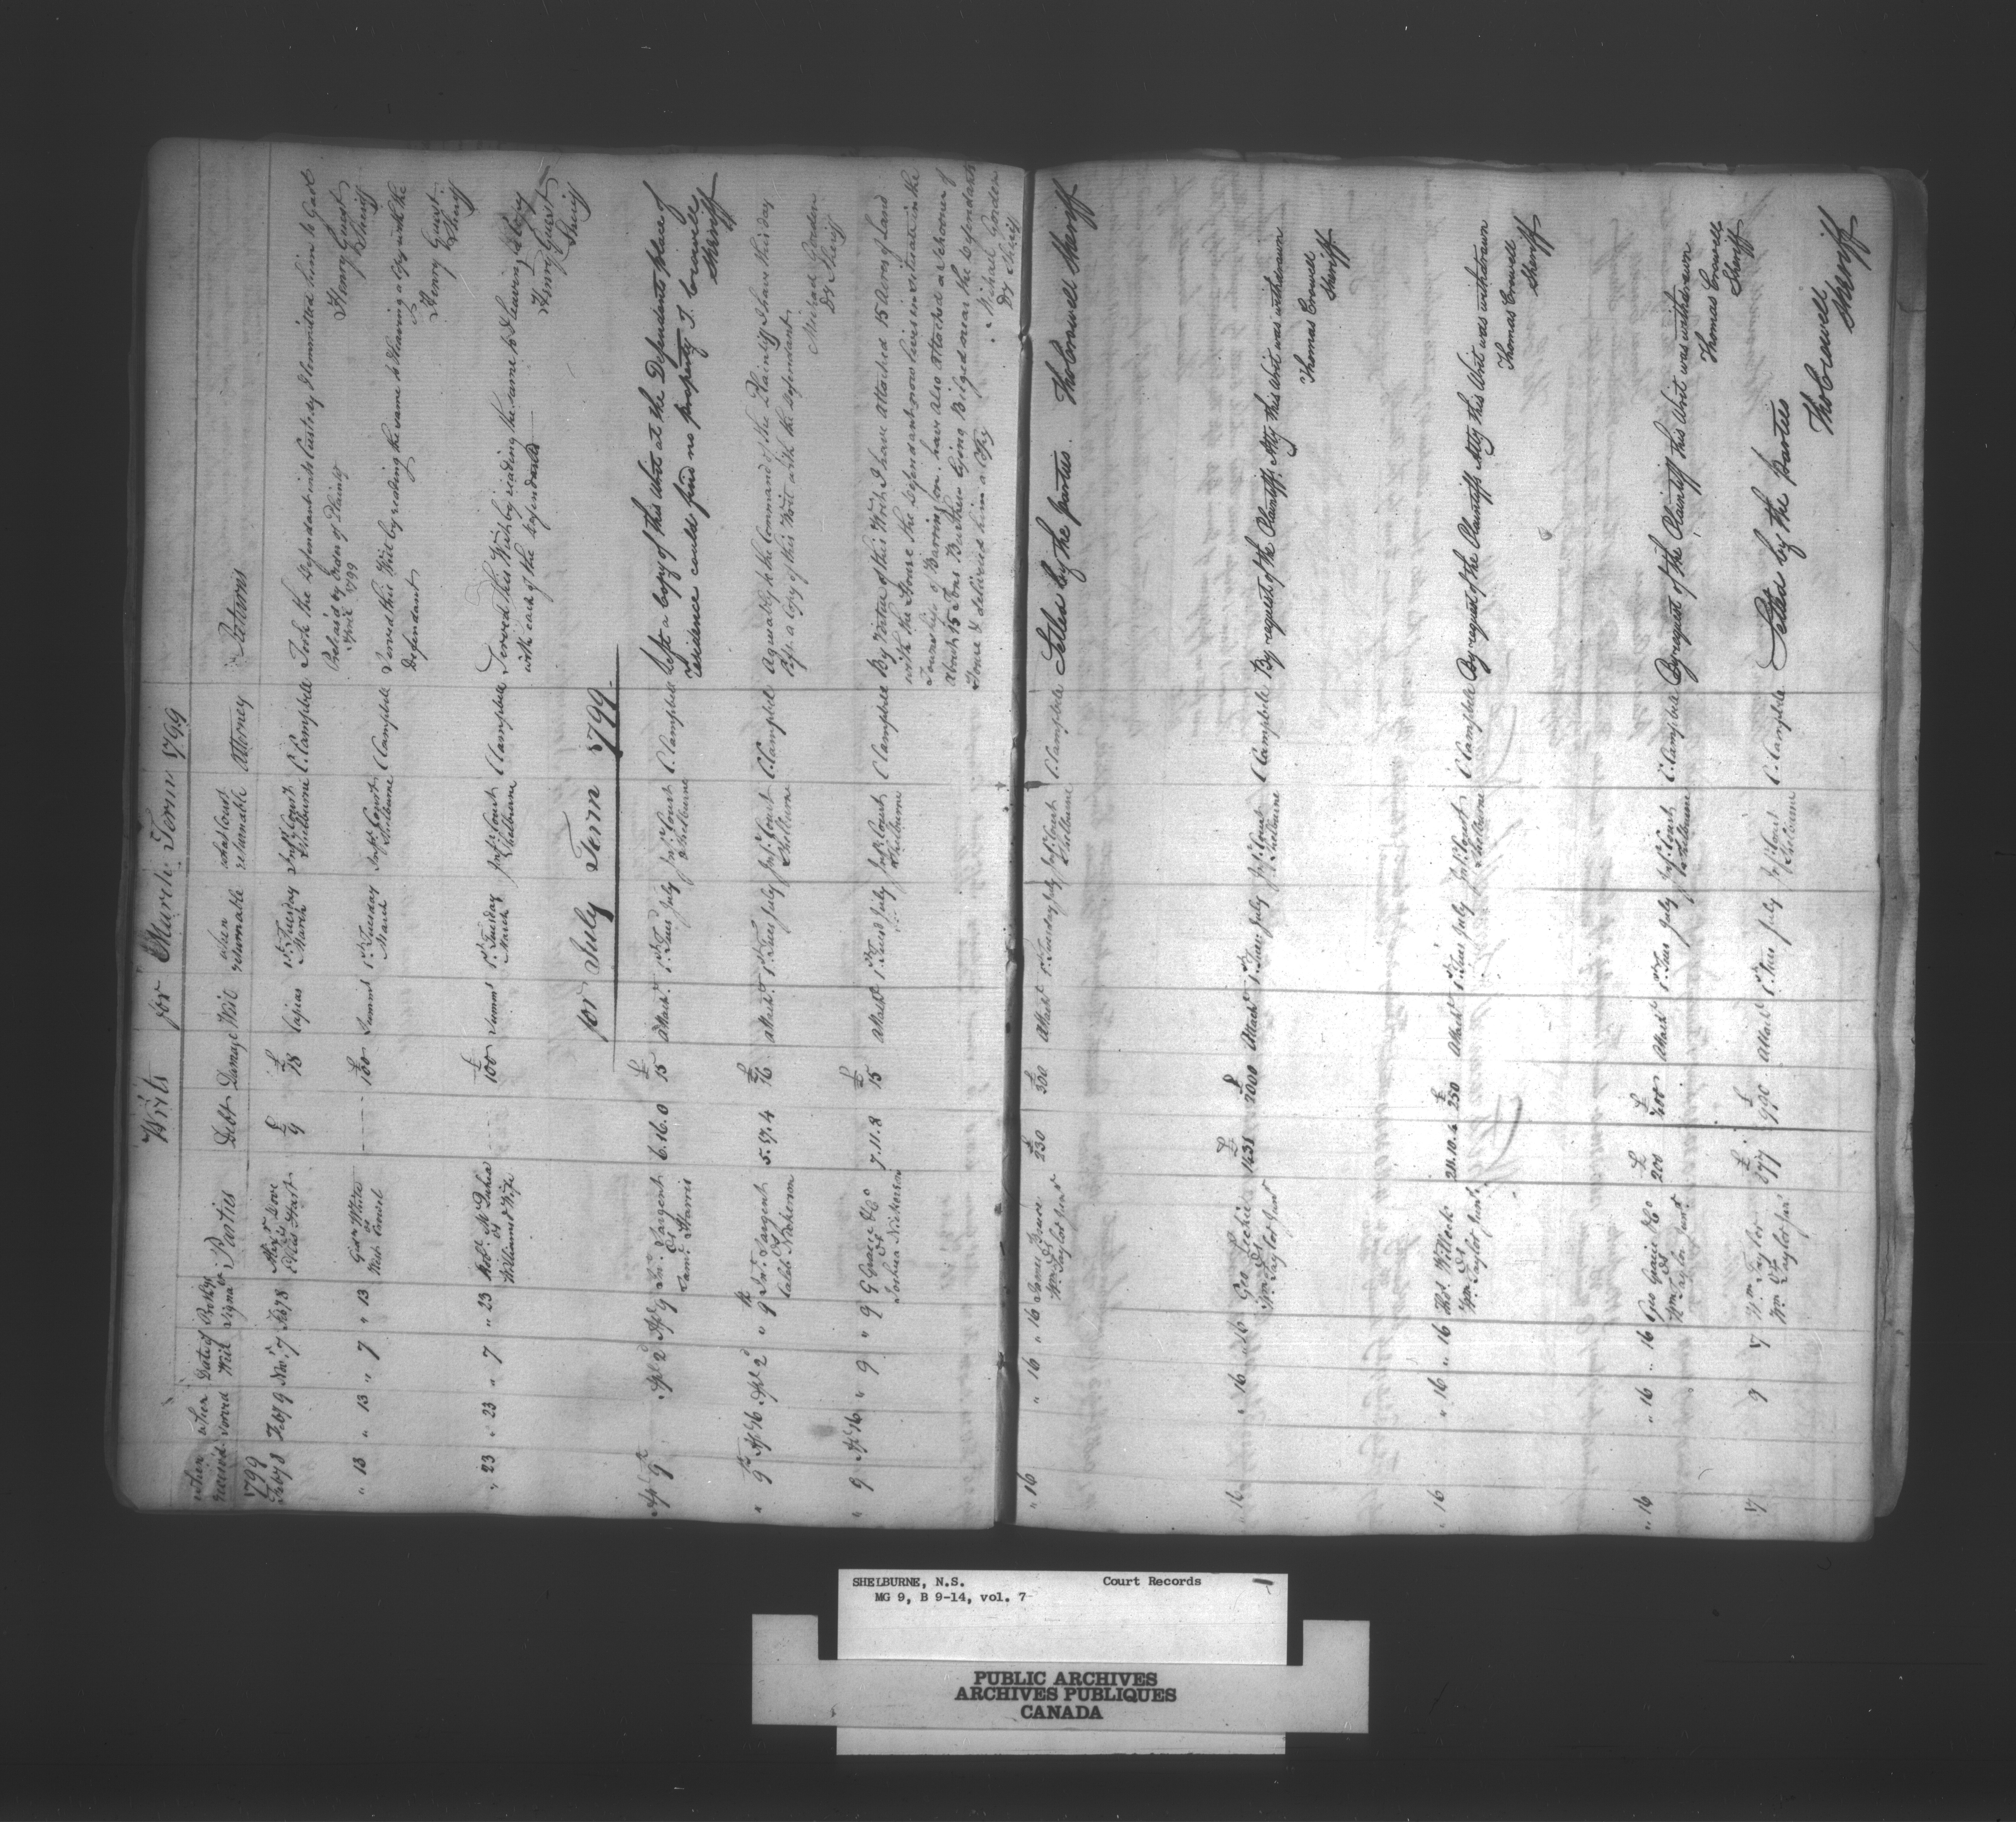 Writs for March Term 1799
when received
when served
Date of Writ
Prothys Signa
Parties
Debt
Damage
Writ
when returnable
what Court returnable
Attorney
Returns
1799
Feby 8 Feby 9 Nov. 7 Feby 8 Alexr Love £ 9 £ 18 Capias 1st Tuesday Infr Court C. Campbell Took the Defendant into Custody & Committed him to Gaol
vs March Shelburne Released by Order of Plaintiff Henry Guest
April 1799 Sheriff
" 13 " 13 " 7 " 13 White £ 100 Summs 1st Tuesday Infr Court C Campbell Served this Writ by reading the same & leaving a Copy with the
vs March Shelburne Defendant Henry Guest
Sheriff
" 23 " 23 " 7 " 23 Robt £ 100 Summs 1st Tuesday Infr Court C Campbell Served this Writ by reading the same to & leaving a Copy
vs March Shelburne with each of the Defendants Henry Guest
William & Wife Sheriff
for July Term 1799
Apl 9th Apl 2d Apl 9 Jno. Sargent 6.16.0 £ 15 Attacht 1st Tues July Infr Court C. Campbell Left a Copy of this Writ at the Defendants place of
vs Shelburne residence could find no property T. Crowell
Saml. Harris Sheriff
" 9th Apl 16 Apl 2d " 9th Jno. Sargent 5.17.4 £ 16 Attacht 1st Tues July Infr Court C. Campbell Agreeably to the Command of the Plaintiff I have this day
vs Shelburne left a Copy of this Writ with the Defendant
Caleb Nickerson Michael Gorden
Dy Sheriff
" 9 Apl 16 " 9 " 9 G Gracie & Co 7.11.8 £ 15 Attacht 1st Tues July Infr Court C Campbell By Virtue of this Writ I have Attached 15 Acres of Land
vs Shelburne with the House the Defendant now lives in situate in the
Joshua Nickerson Township of Barrington. have also Attached a Schooner of
About 15 Tons Burthen lying Bilged near the Defendants
House & delivered him a Copy Michael Gorden
Dy Sheriff
" 16 " 16 " 16 James £ 230 £ 300 Attacht 1st Tuesday July Infr Court C. Campbell Settled by the parties. Tho Crowell Sheriff
vs Shelburne
Wm Taylor Junr
16 " 16 " 16 Geo Leckie £ 1431 £ 2000 Attacht 1st Tues July Infr Court C Campbell By request of the Plaintiffs Atty this Writ was withdrawn
vs Shelburne Thomas Crowell
Wm Taylor Junr Sheriff
" 16 " 16 " 16 Thos Willock 211.10.6 £ 250 Attacht 1st Tues July Infr Court C Campbell By request of the Plaintiffs Atty this Writ was withdrawn
vs Shelburne Thomas Crowell
Wm Taylor Junr Sheriff
" 16 " 16 " 16 Geo Gracie & Co £ 200 £ 400 Attacht 1st Tues July Infr Court C. Campbell By request of the Plaintiff this Writ was withdrawn
vs Shelburne Thomas Crowell
Wm Taylor Junr Sheriff
17 9 17 Wm Taylor £ 577 £ 900 Attacht 1st Tues July Infr Court C. Campbell Settled by the parties
vs Shelburne Tho Crowell
Wm Taylor Junr Sheriff
SHELBURNE, N.S. Court Records
MG 9, B 9-14, vol. 7
PUBLIC ARCHIVES
ARCHIVES PUBLIQUES
CANADA